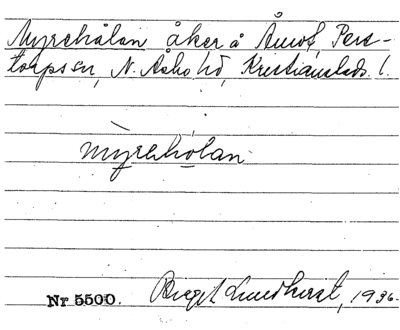 Myrehålan åker å Åmot, Pers-
torps sn, N. Åsbo hd, Kristianstads l.
myrehòlan
Nr 5500. Birgit Lundkvist, 1936.